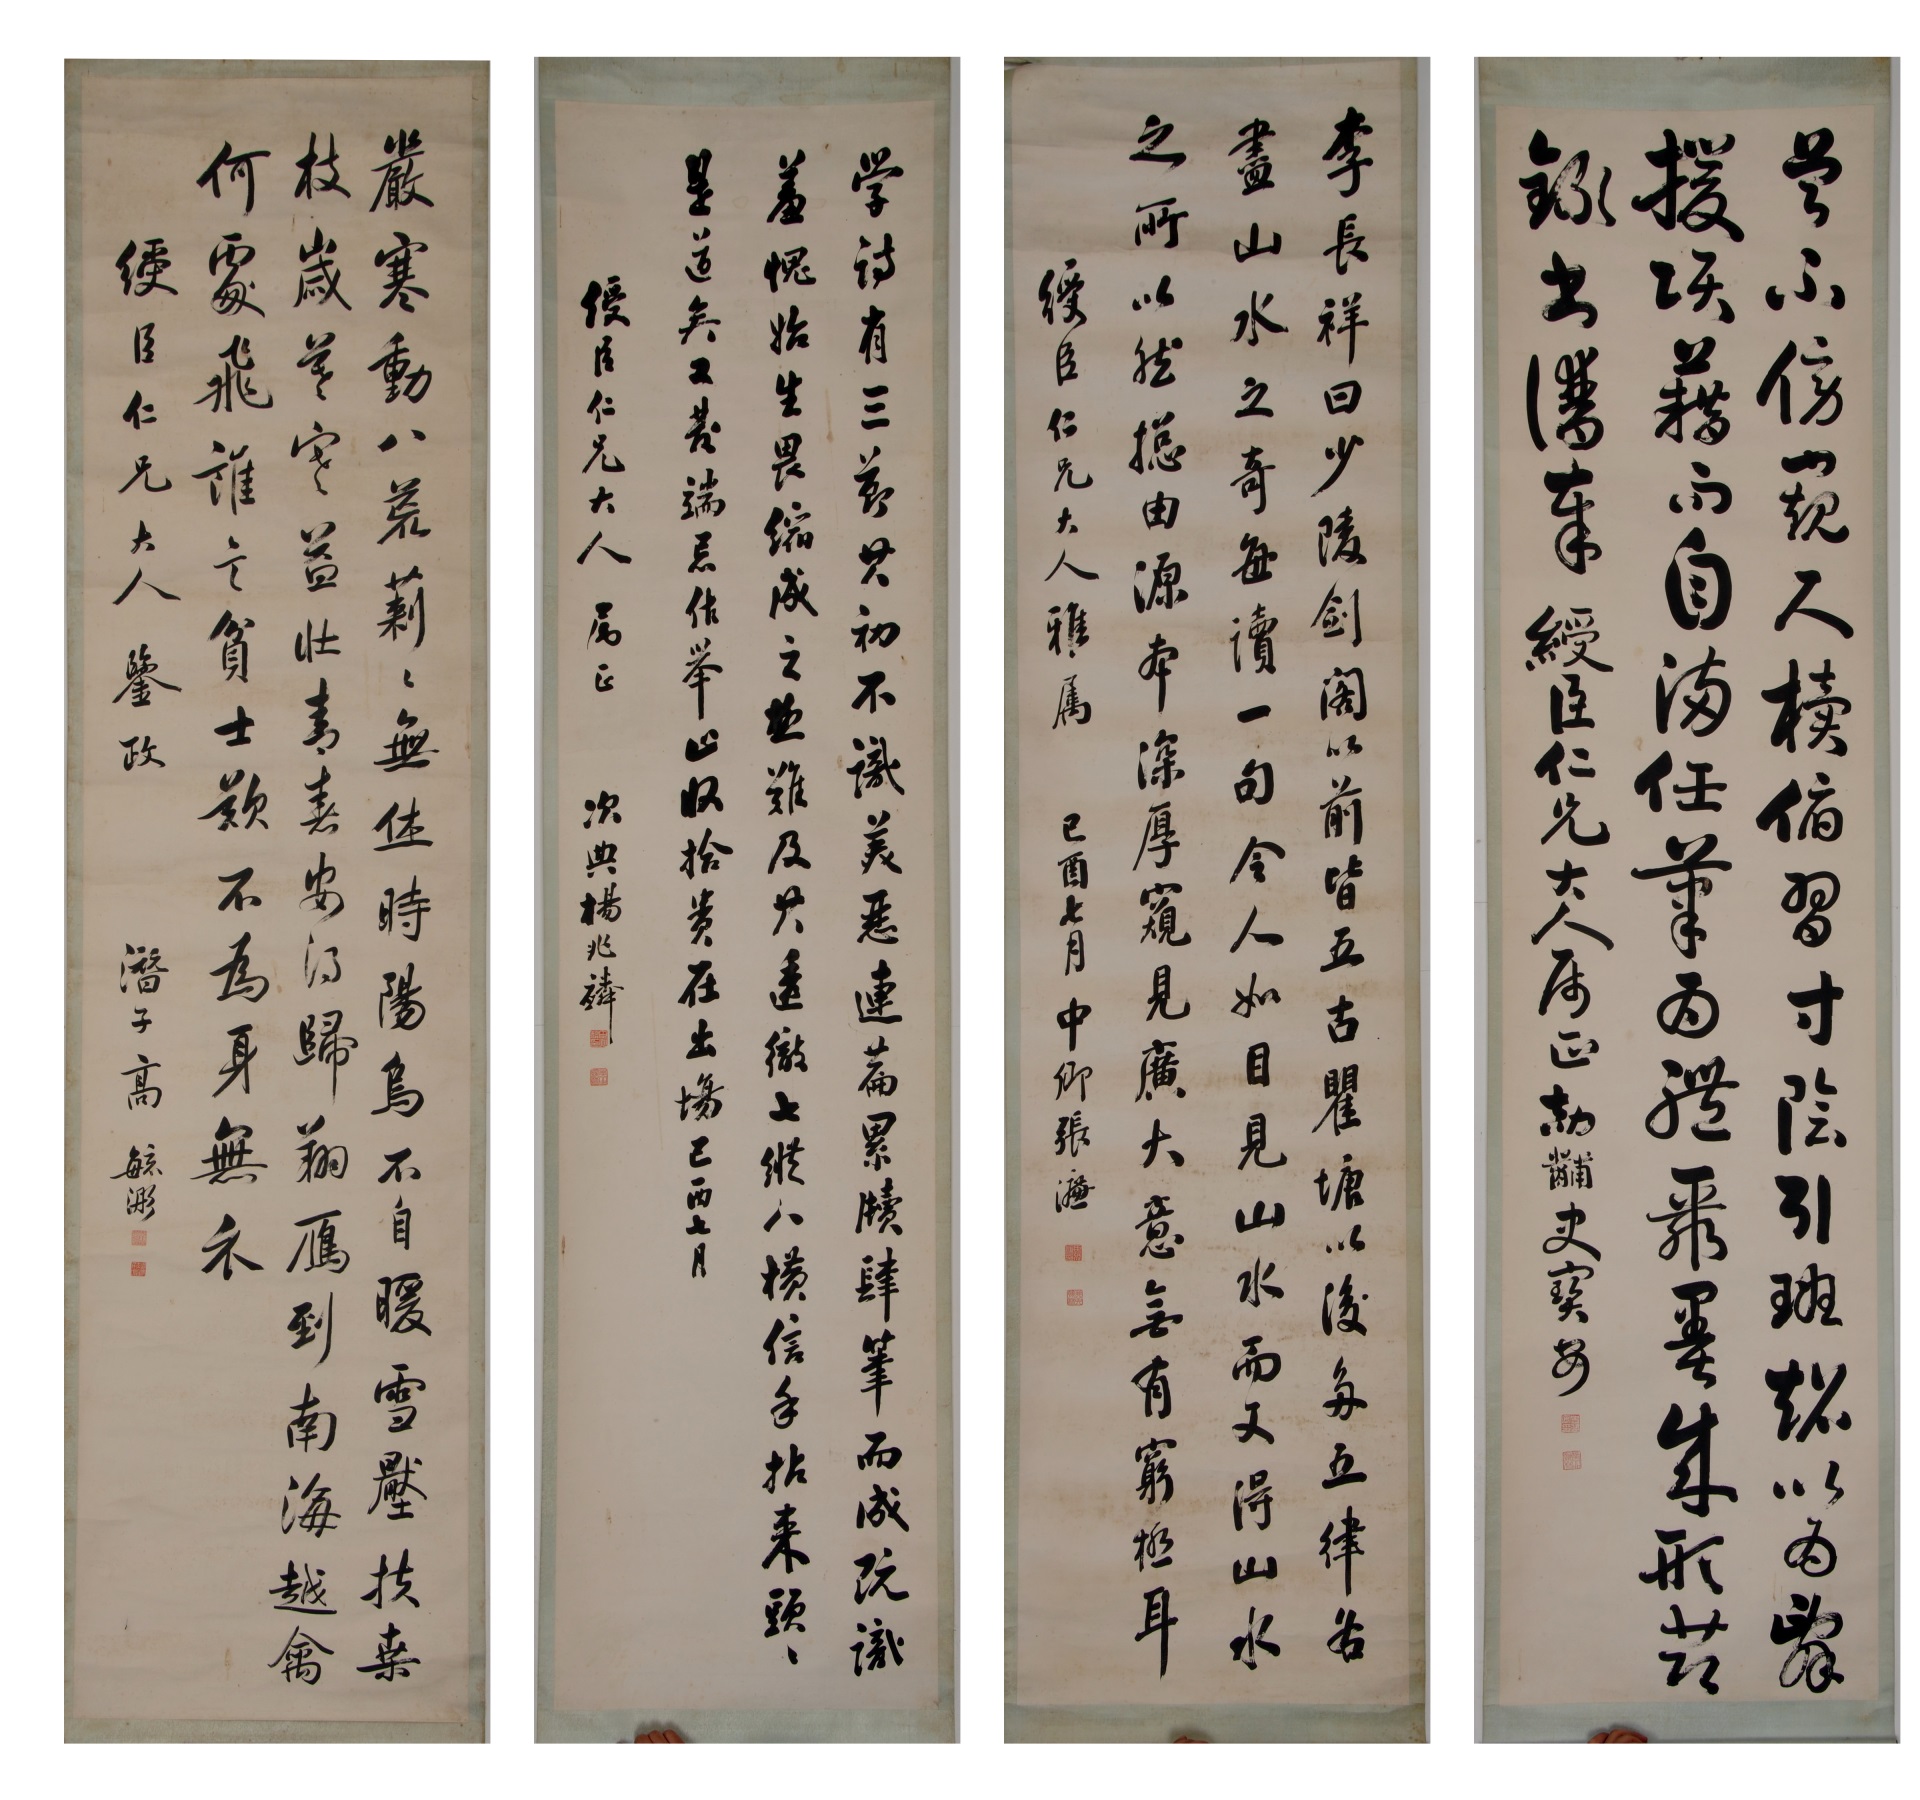 曾不傍窺尺牘俯習寸陰引班超以為辭
援項藉而自滿任筆為體聚墨成形节
錄書譜奉 綬臣仁兄大人属正劼黼史寶安
李長祥曰少陵劍閣以前皆五古瞿塘以後多五律各
盡山水之奇每讀一句令人如目見山水而又得山水
之所以然總由源本深厚窺見廣大意無有窮極耳
綬臣仁兄大人雅属 己酉七月中卿張濂
学詩有三節其初不識美惡連篇累牘肆筆而成既識
羞愧始生畏縮成之亟難及其透徹七縱八橫信手拈来頭〻
是道矣又發端忌作舉止收拾貴在出場己酉七月
綬臣仁兄大人 属正 次典楊兆麟
嚴寒動八荒莿〻無休時陽烏不自暖雪壓扶桒
枝歲暮寒益壯青春安得歸朔雁到南海越禽
何處飛誰言貧士歎不為身無衣
綬臣仁兄大人 鑒政 潛子高毓浵